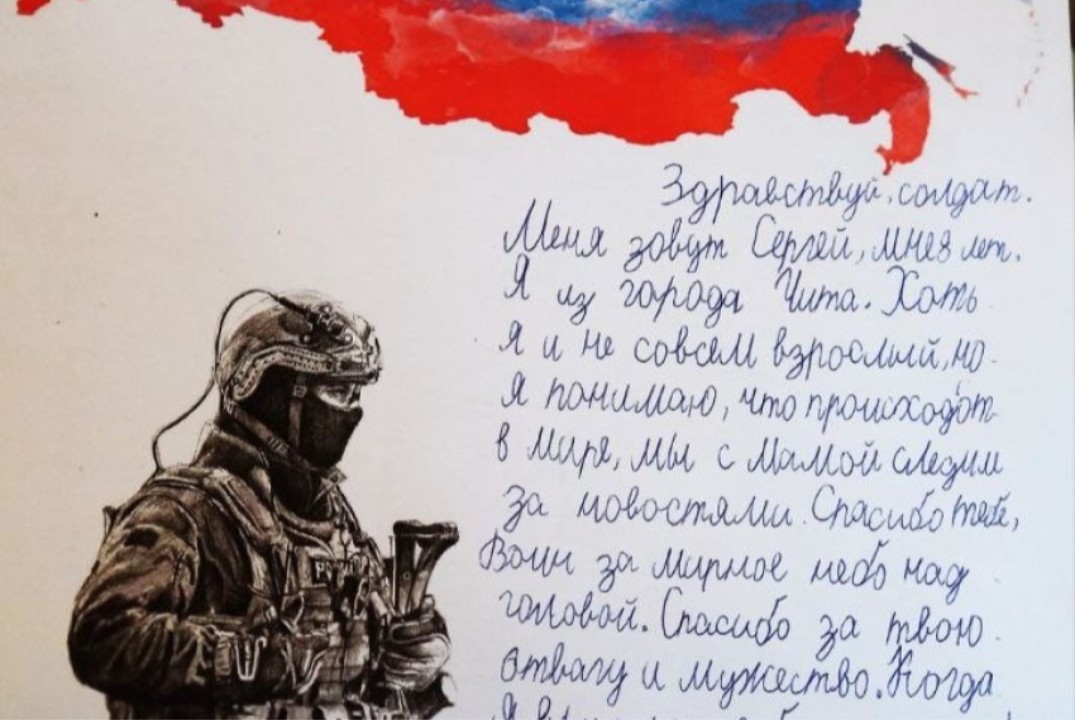 Здравствуй, солдат.
Меня зовут Сергей, мне 8 лет.
Я из города Чита. Хоть
я и не совсем взрослый, но
я понимаю, что происходит
в мире, мы с мамой следим
за новостями. Спасибо тебе,
Воин за мирное небо над
головой. Спасибо за твою
отвагу и мужество. Когда